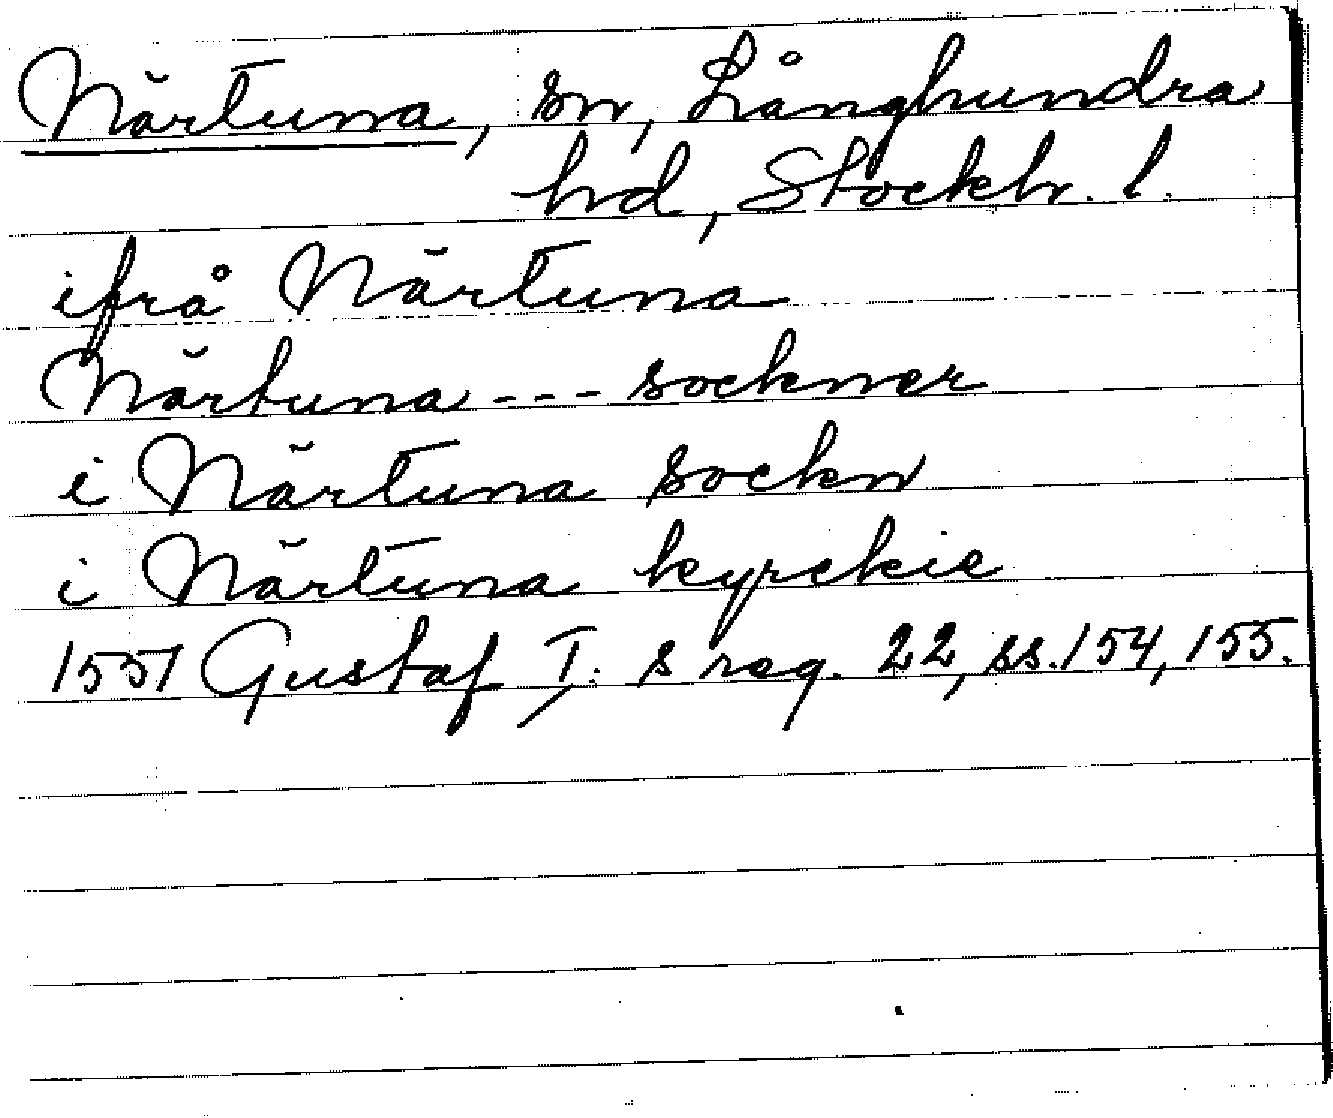 Närtuna, sn, Långhundra
hd, Stockh. l.
ifrå Närtuna
Närtuna --- sockner
i Närtuna sockn
i Närtuna kyrckie
1551 Gustaf I: s reg. 22, ss. 154, 155.